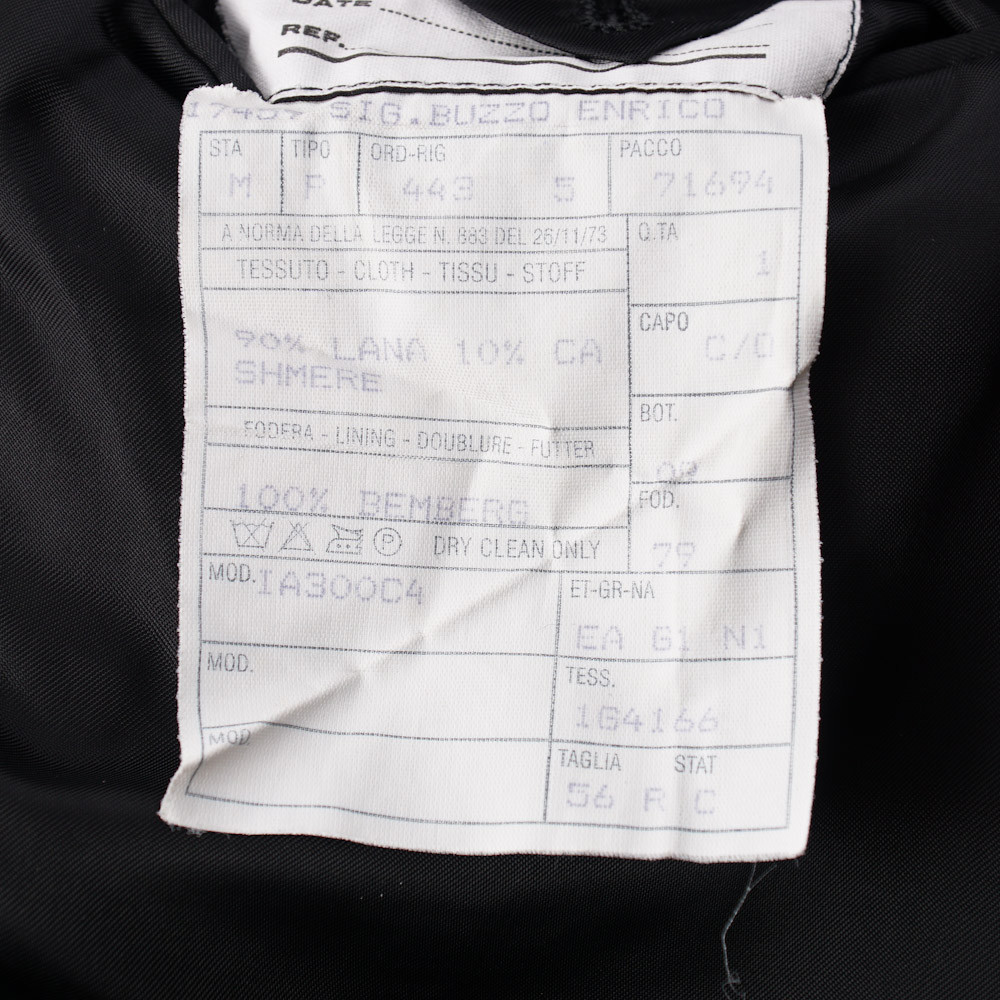 DATE
REF.
17459 SIG.BUZZO ENRICO
STA TIPO ORD-RIG PACCO
M P 443 5 71694
A NORMA DELLA LEGGE N. 883 DEL 26/11/73
Q.TA
1
TESSUTO - CLOTH - TISSU - STOFF
90% LANA 10% CA
SHMERE
CAPO
C/D
FODERA - LINING - DOUBLURE - FUTTER
BOT.
100% BEMBERG
FOD.
79
P DRY CLEAN ONLY
MOD. IA300C4
ET-GR-NA
EA G1 N1
MOD.
TESS.
1G4166
MOD
TAGLIA STAT
56 R C